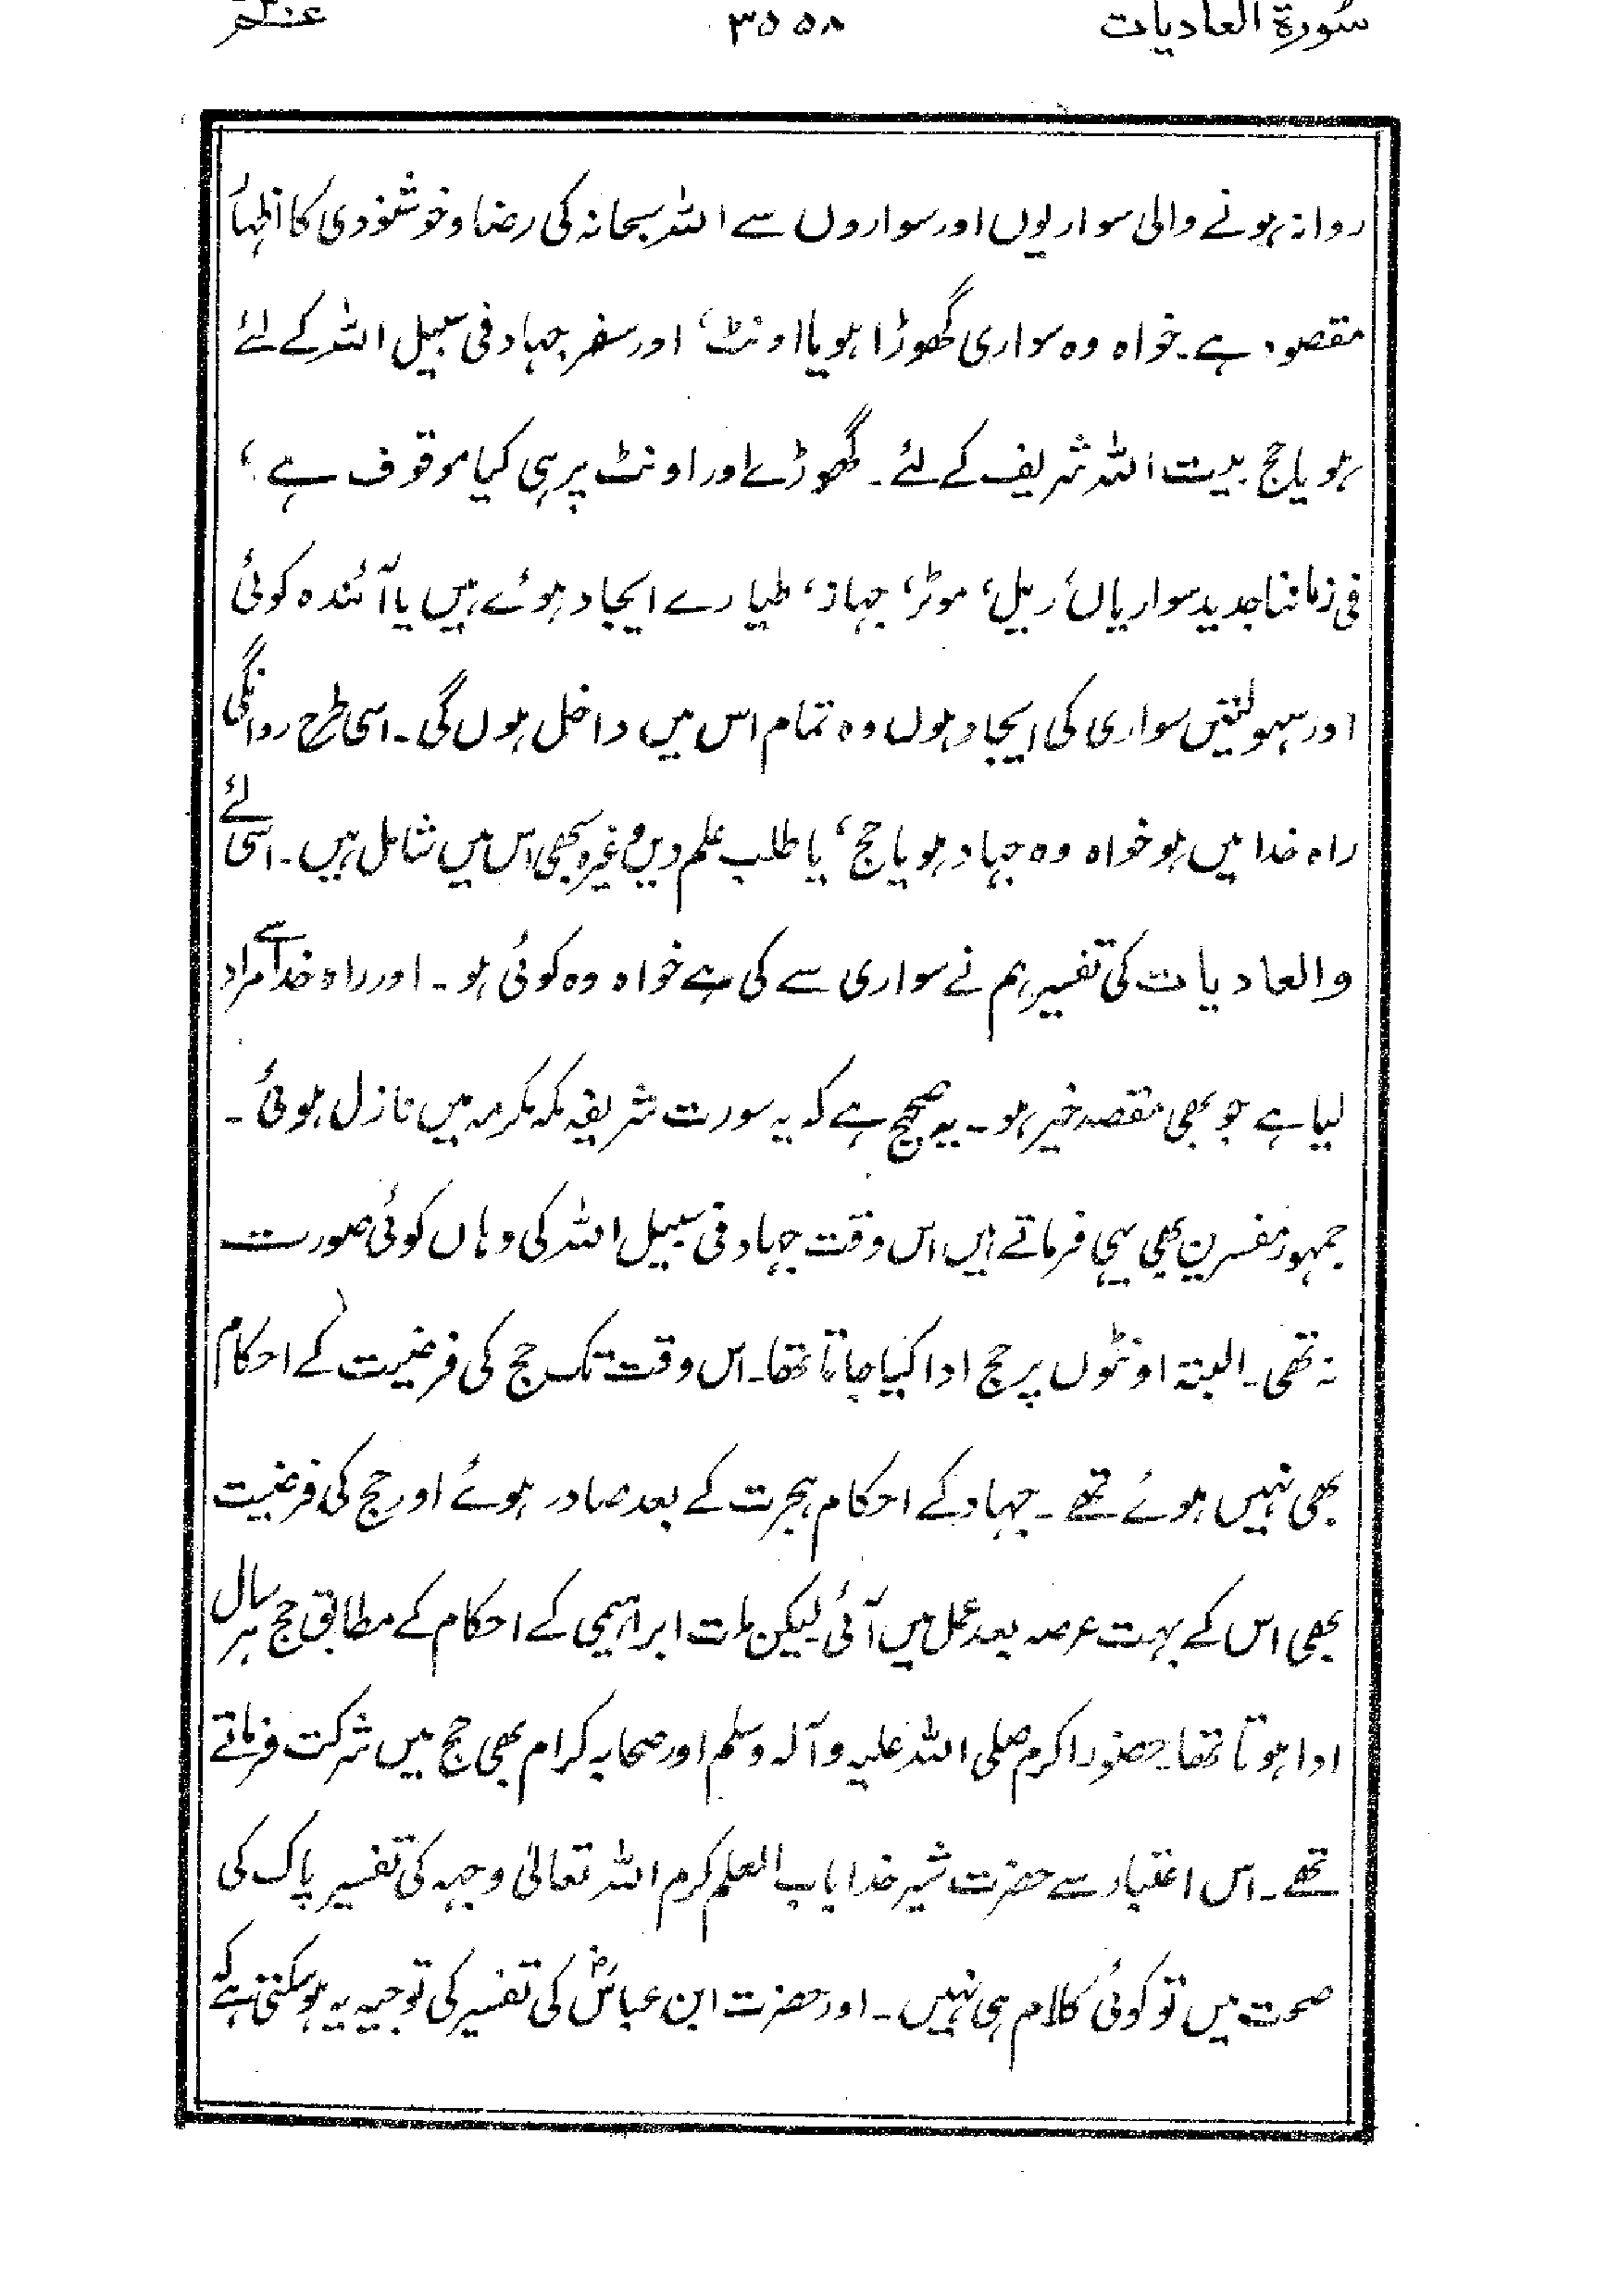 سُورة العادیات ۳۵۵۸ عمّ
روانہ ہونے والی سواریوں اور سواروں سے اللہ سبحانہ کی رضا و خوشنودی کا اظہار
مقصود ہے۔ خواہ وہ سواری گھوڑا ہو یا اونٹ‘ اور سفر جہاد فی سبیل اللہ کے لئے
ہو یا حج بیت اللہ شریف کے لئے۔ گھوڑے اور اونٹ پر ہی کیا موقوف ہے‘
فی زماننا جدید سواریاں‘ ریل‘ موٹر‘ جہاز‘ طیارے ایجاد ہوئے ہیں یا آئندہ کوئی
اور سہولتیں سواری کی ایجاد ہوں وہ تمام اس میں داخل ہوں گی۔ اسی طرح روانگی
راہ خدا میں ہو خواہ وہ جہاد ہو یا حج‘ یا طلب علم دین وغیرہ سبھی اس میں شامل ہیں۔ اسی لئے
والعادیات کی تفسیر ہم نے سواری سے کی ہے خواہ وہ کوئی ہو۔ اور راہ خدا سے مراد
لیا ہے جو بھی مقصد خیر ہو۔ یہ صحیح ہے کہ یہ سورت شریفہ مکہ مکرمہ میں نازل ہوئی۔
جمہور مفسرین بھی یہی فرماتے ہیں اس وقت جہاد فی سبیل اللہ کی وہاں کوئی صورت
نہ تھی۔ البتہ اونٹوں پر حج ادا کیا جاتا تھا۔ اس وقت تک حج کی فرضیت کے احکام
بھی نہیں ہوئے تھے۔ جہاد کے احکام ہجرت کے بعد صادر ہوئے اور حج کی فرضیت
بھی اس کے بہت عرصہ بعد عمل میں آئی لیکن ملت ابراہیمی کے احکام کے مطابق حج ہر سال
ادا ہوتا تھا۔ حضور اکرم صلی اللہ علیہ وآلہ وسلم اور صحابہ کرام بھی حج میں شرکت فرماتے
تھے۔ اس اعتبار سے حضرت شیر خدا باب العلم کرم اللہ تعالیٰ وجہہ کی تفسیر پاک کی
صحت میں تو کوئی کلام ہی نہیں۔ اور حضرت ابن عباسؓ کی تفسیر کی توجیہ یہ ہو سکتی ہے کہ